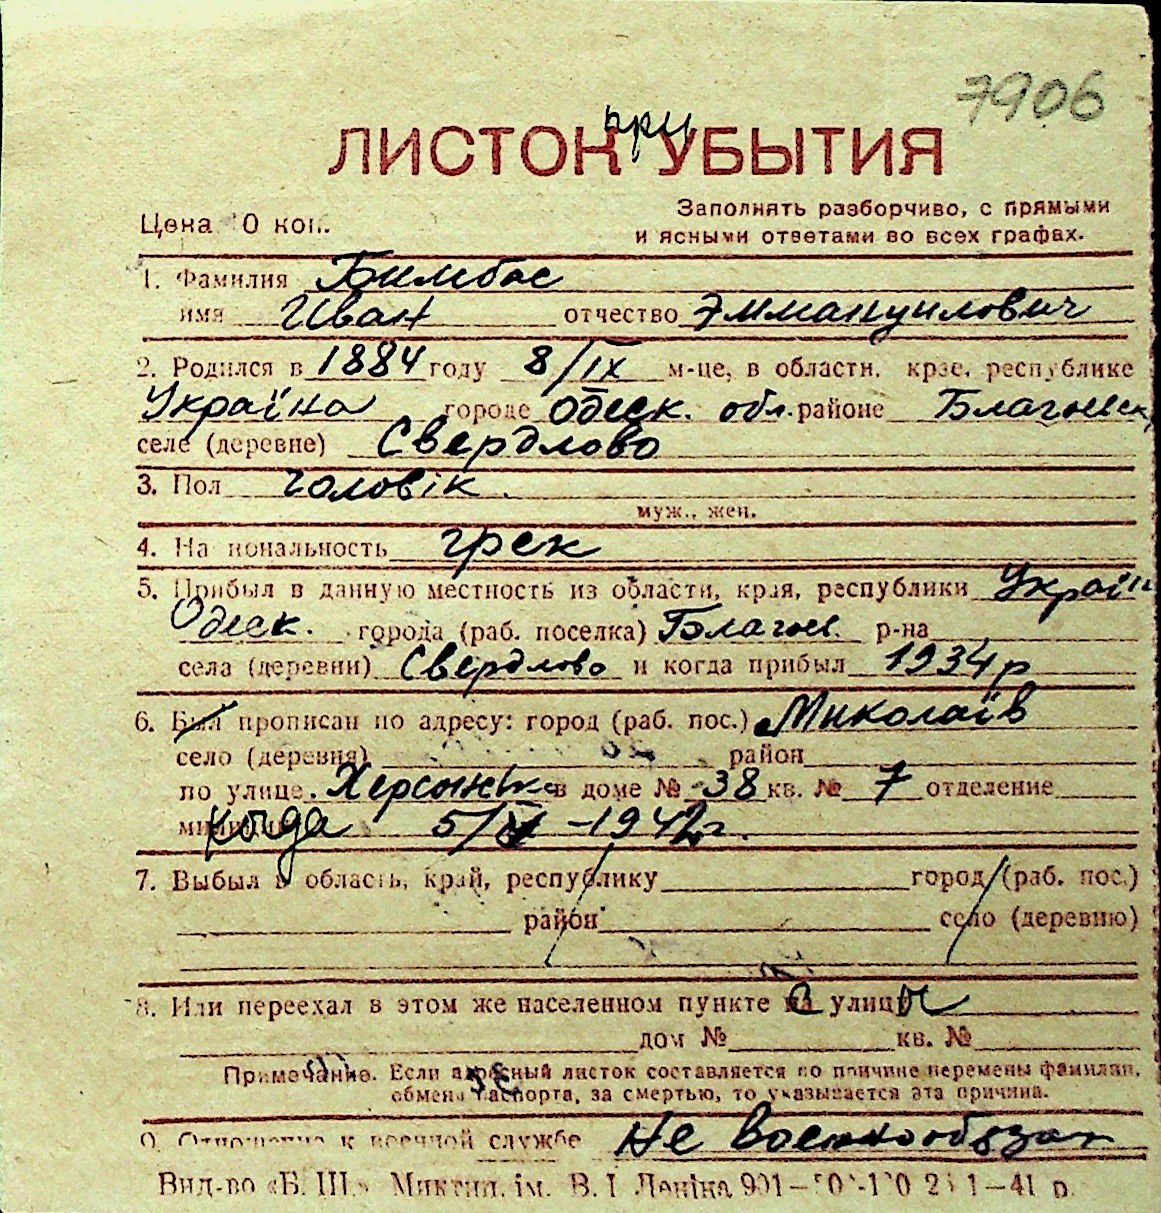 7906
ЛИСТОК при УБЫТИЯ
Цена 10 коп.
Заполнять разборчиво, с прямыми
и ясными ответами во всех графах.
1. Фамилия Бимбас
имя Иван отчество Эммануилович
2. Родился в 1884 году 8/IX м-це, в области, крае, республике
Україна городе Одеск. обл. районе Благоевск.
селе (деревне) Свердлово
3. Пол чоловік.
муж., жен.
4. Национальность грек
5. Прибыл в данную местность из области, края, республики Україн
Одеск. города (раб. поселка) Благоев. р-на
села (деревни) Свердлово и когда прибыл 1934 р
6. Был прописан по адресу: город (раб. пос.) Миколаїв
село (деревня) район
по улице Херсонська в доме № 38 кв. № 7 отделение
милиции когда 5/ -1942г.
7. Выбыл в область, край, республику город (раб. пос.)
район село (деревню)
8. Или переехал в этом же населенном пункте с улицы
дом № кв. №
Примечание. Если адресный листок составляется по причине перемены фамилии,
обмена паспорта, за смертью, то указывается эта причина.
9. Отношение к военной службе не военнообязан
Вид-во «Б. Ш.» Миктип. ім. В. І. Леніна 901— —41 р.